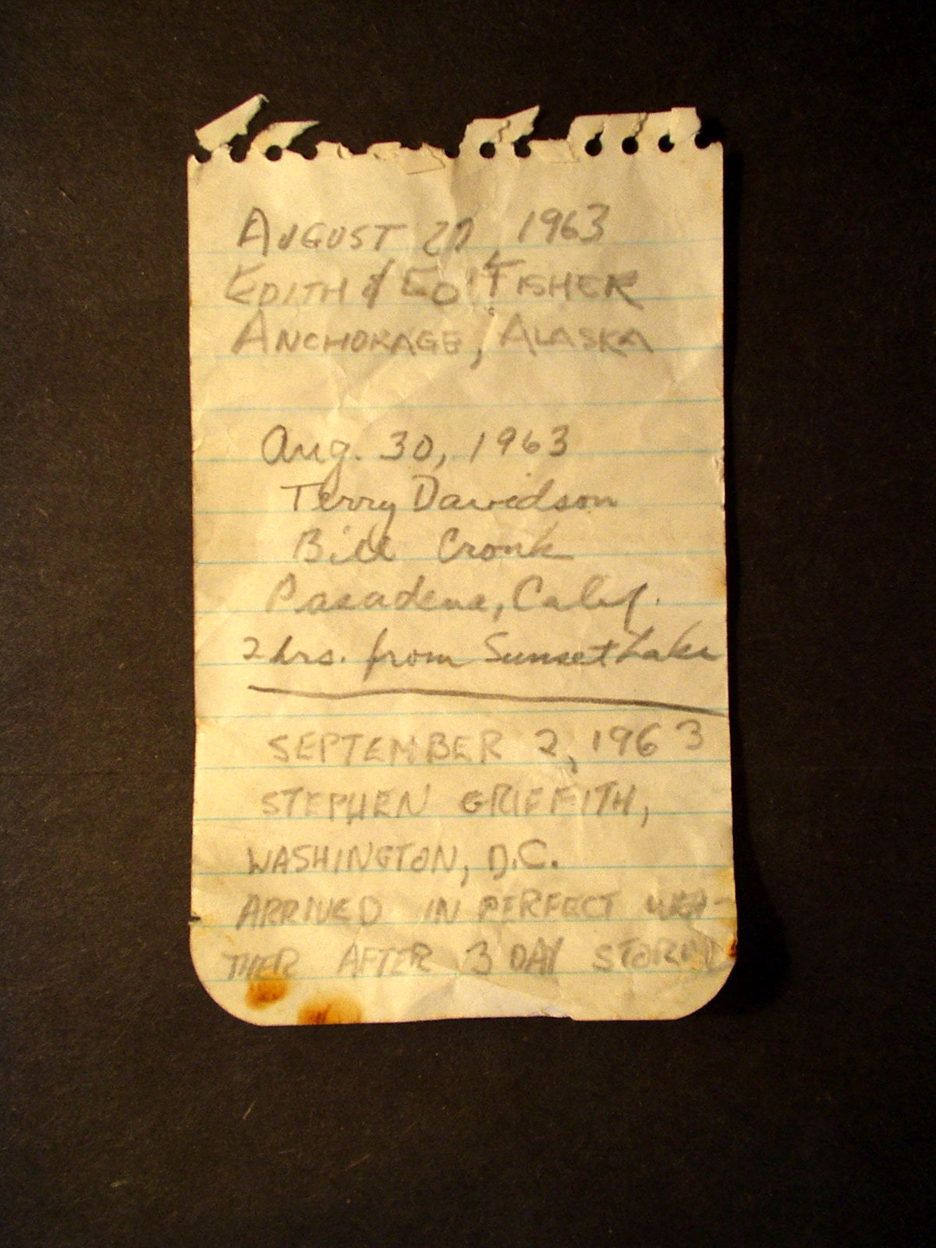 AUGUST 27, 1963
EDITH & ED FISHER
ANCHORAGE, ALASKA
Aug. 30, 1963
Terry Davidson
Bill Cronk
Pasadena, Calif.
2 hrs. from Sunset Lake
SEPTEMBER 2, 1963
STEPHEN GRIFFITH,
WASHINGTON, D.C.
ARRIVED IN PERFECT WEA-
THER AFTER 3 DAY STORM